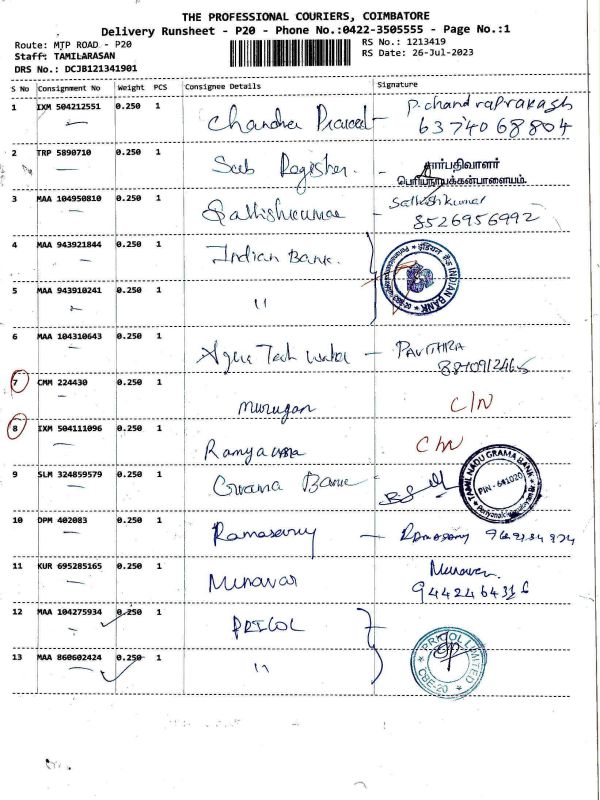 THE PROFESSIONAL COURIERS, COIMBATORE
Delivery Runsheet - P20 - Phone No.:0422-3505555 - Page No.:1
Route: MTP ROAD - P20
RS No.: 1213419
Staff: TAMILARASAN
RS Date: 26-Jul-2023
DRS No.: DCJB121341901
S No Consignment No Weight PCS Consignee Details Signature
1 IXM 504212551 0.250 1 Chandra P.chandraprakash
6374068804
2 TRP 5890710 0.250 1 Sub Register. - சார்பதிவாளர்
பெரியநாயக்கன்பாளையம்.
3 MAA 104950810 0.250 1 Sathishkumar - Sathishkumar
8526956992
4 MAA 943921844 0.250 1 Indian Bank. INDIAN BANK
5 MAA 943910241 0.250 1 "
6 MAA 104310643 0.250 1 Tech - PAVITHRA
8810912465
7 CMM 224430 0.250 1 Murugan C/N
8 IXM 504111096 0.250 1 Ramya C/N
9 SLM 324859579 0.250 1 Grama Bank TAMIL NADU GRAMA BANK
PIN - 641020
10 DPM 402083 0.250 1 Ramasamy - Ramasamy
11 KUR 695285165 0.250 1 Munavar Munavar
9442464316
12 MAA 104275934 0.250 1 PRICOL PRICOL LIMITED
CBE-20
13 MAA 860602424 0.250 1 "